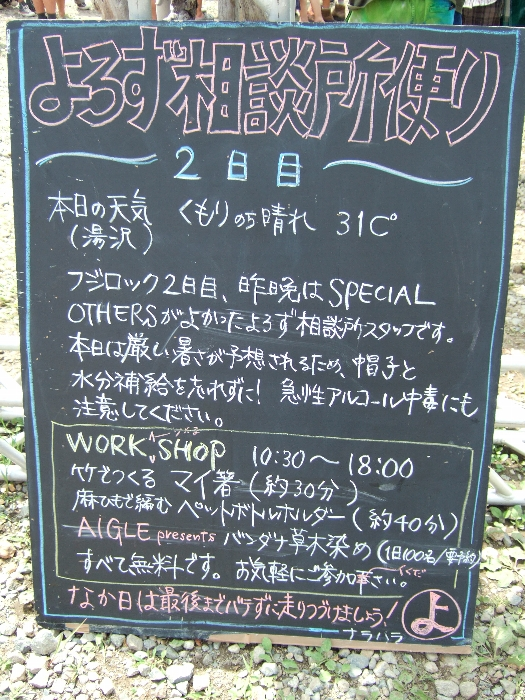 よろず相談所便り
2日目
本日の天気 くもりのち晴れ 31C°
(湯沢)
フジロック2日目、昨晩はSPECIAL
OTHERSがよかったよろず相談所スタッフです。
本日は厳しい暑さが予想されるため、帽子と
水分補給を忘れずに! 急性アルコール中毒にも
注意してください。
WORK SHOP 10:30〜18:00
竹でつくる マイ箸 (約30分)
麻ひもで編む ペットボトルホルダー (約40分)
AIGLE presents バンダナ草木染め (1日100名/要予約)
すべて無料です。 お気軽にご参加ください。
なか日は最後までバテずに走りつづけましょう!
よ
ナラハラ